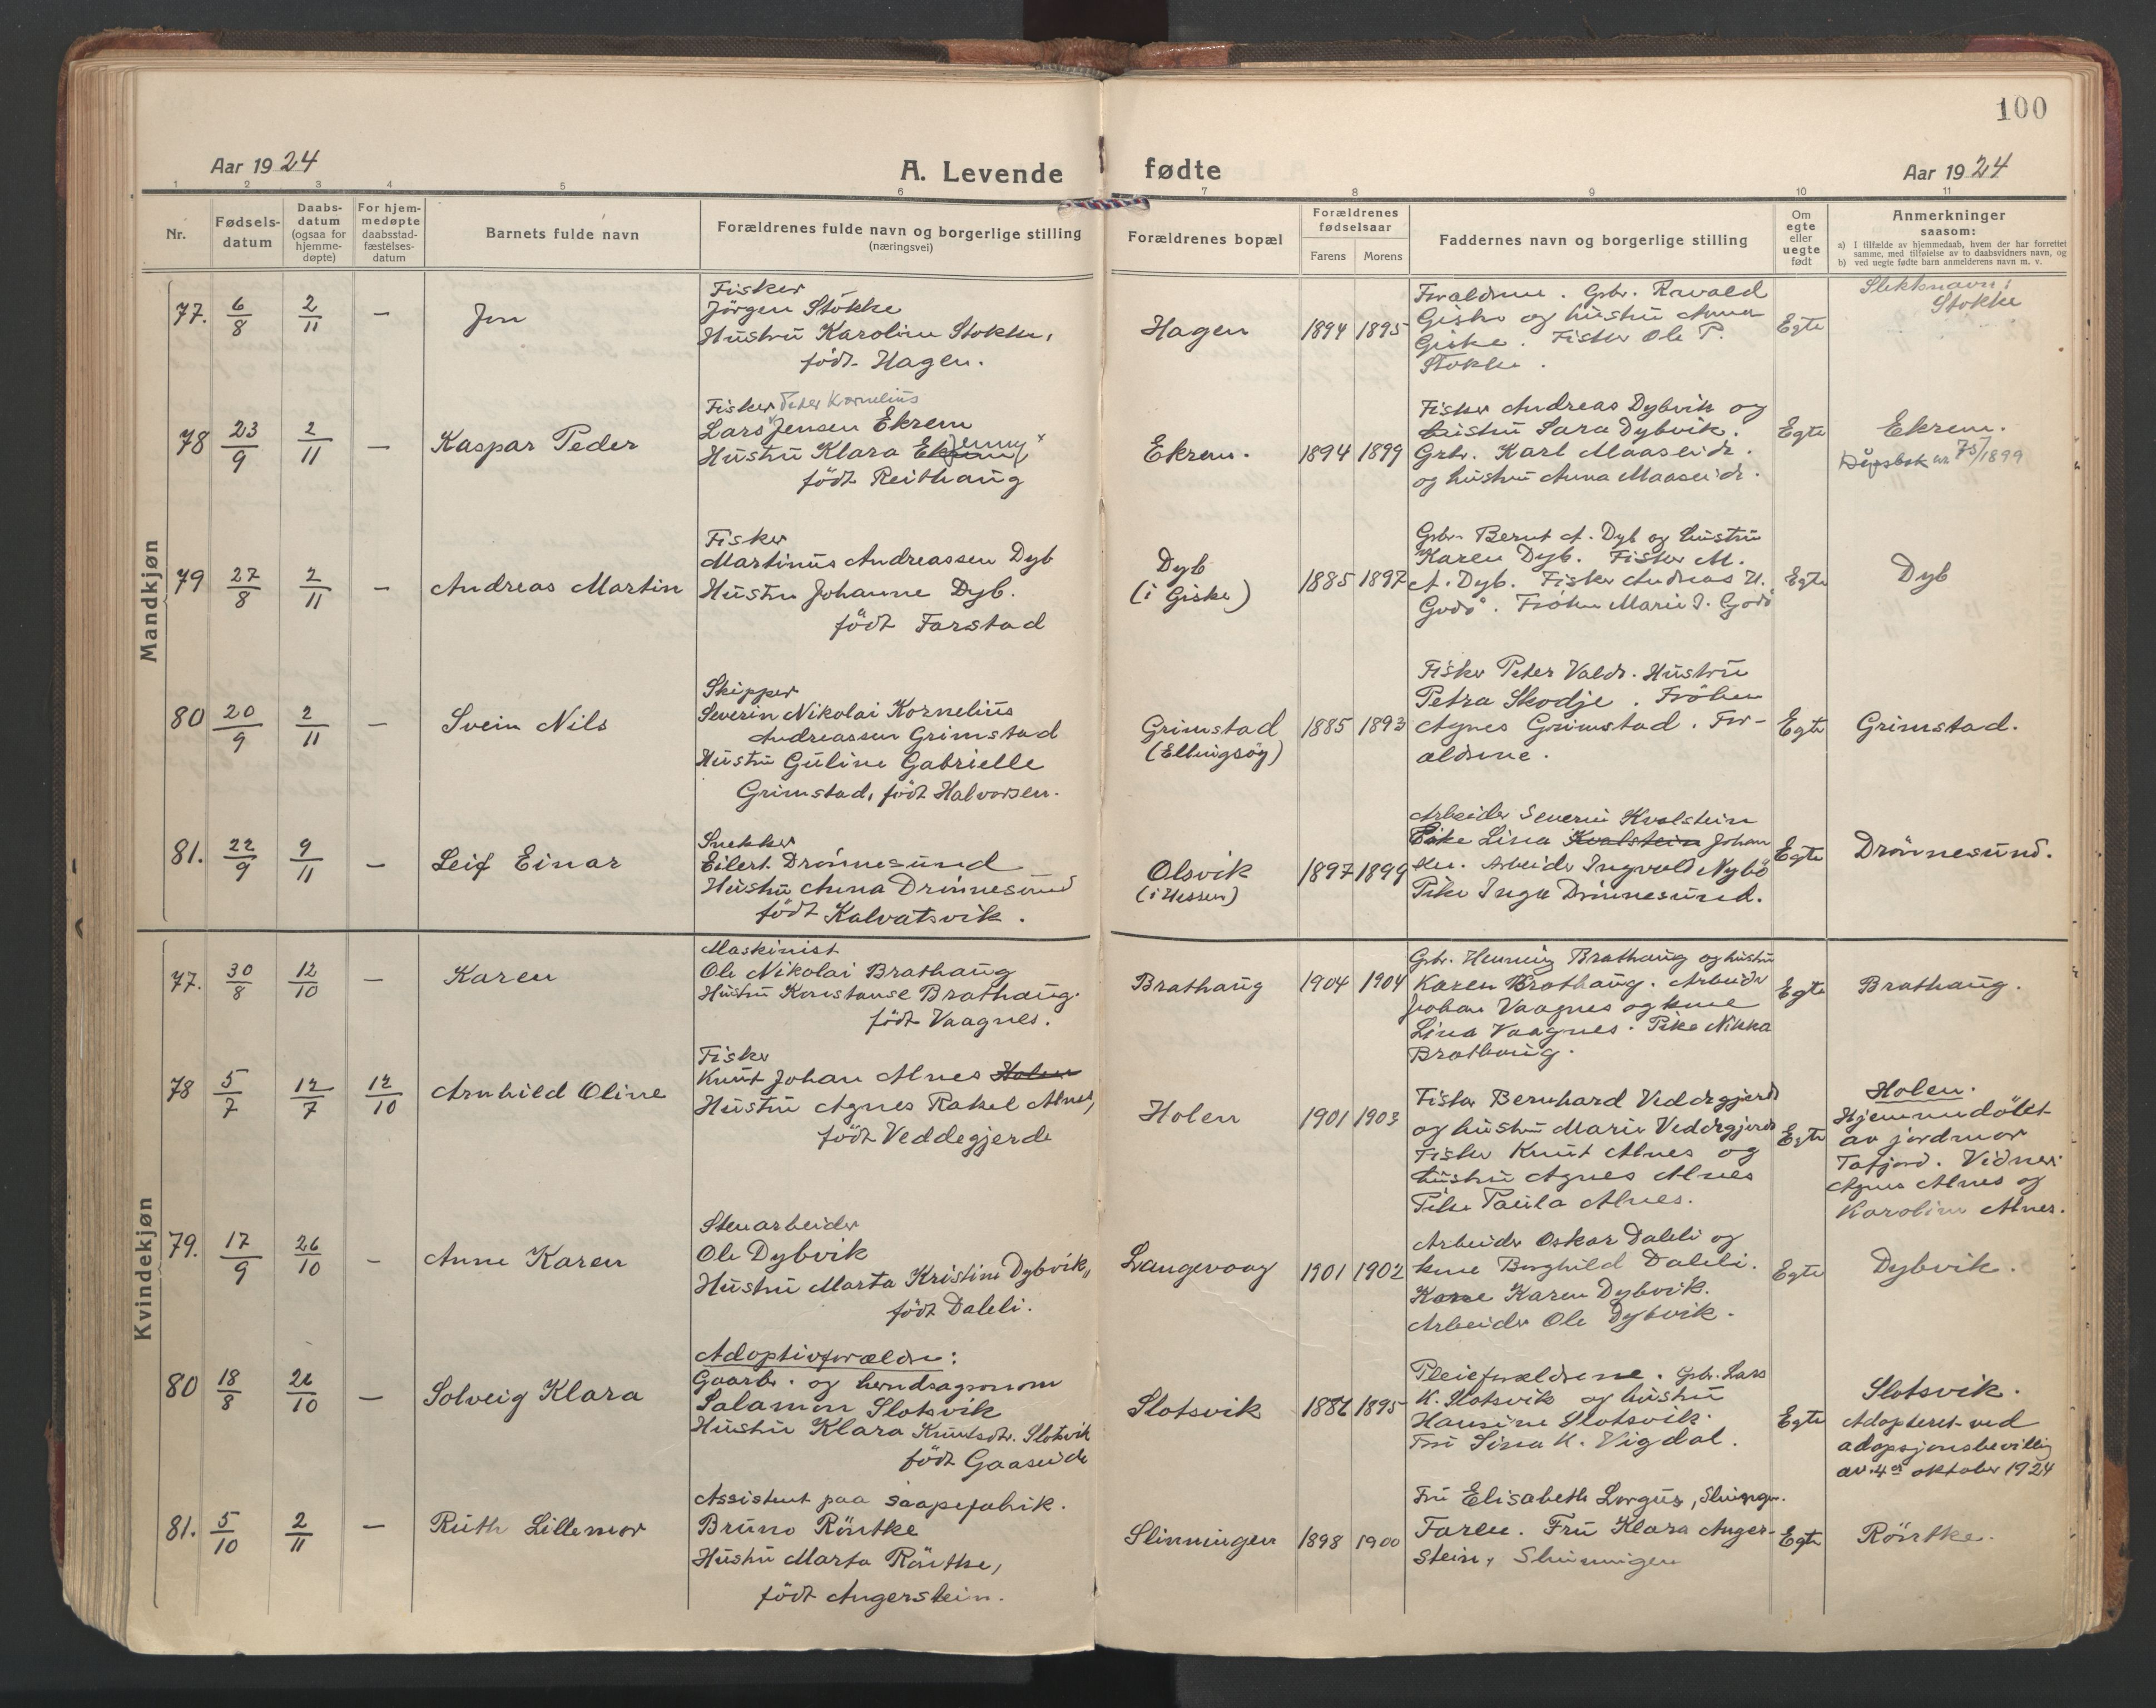 100
Aar 1924
A. Levende fødte
Aar 1924
1 2 3 4 5 6 7 8 9 10 11
Nr.
Fødsels-
datum
Daabs-
datum
(ogsaa for
hjemme-
døpte)
For hjem-
medøpte
daabsstad-
fæstelses-
datum
Barnets fulde navn
Forældrenes fulde navn og borgerlige stilling
(næringsvei)
Forældrenes bopæl
Forældrenes
fødselsaar
Farens Morens
Faddernes navn og borgerlige stilling
Om
egte
eller
uegte
født
Anmerkninger
saasom:
a) I tilfælde av hjemmedaab, hvem der har forrettet
samme, med tilføielse av to daabsvidners navn, og
b) ved uegte fødte barn anmelderens navn m. v.
Mandkjøn
77. 6/8 2/11 — Jon
Fisker
Jörgen Stokke
Hustru Karoline Stokke,
födt Hagen.
Hagen 1894 1895
Forældrene. Gbr. Ravald
Giske og hustru Anna
Giske. Fisker Ole P.
Stokke.
Egte
Slektsnavn:
Stokke
78 23/9 2/11 — Kaspar Peder
Fisker Peter Kornelius
Lars Jensen Ekrem
Hustru Klara Ekrem Jenny x
födt Reithaug
Ekrem. 1894 1899
Fisker Andreas Dybvik og
hustru Sara Dybvik.
Gbr. Karl Maaseidr.
og hustru Anna Maaseidr.
Egte
Ekrem.
Dåpsbok nr 75/1899
79 27/8 2/11 — Andreas Martin
Fisker
Martinus Andreassen Dyb
Hustru Johanne Dyb.
födt Farstad
Dyb
(i Giske)
1885 1897
Gbr. Bernt A. Dyb og hustru
Karen Dyb. Fisker M.
A. Dyb. Fisker Andreas H.
Godö. Fröken Marie J. Godö
Egte
Dyb
80 20/9 2/11 — Svein Nils
Skipper
Severin Nikolai Kornelius
Andreassen Grimstad
Hustru Guline Gabrielle
Grimstad, födt Halvorsen.
Grimstad
(Ellingsöy)
1885 1893
Fisker Peter Valdr. Hustru
Petra Skodje. Fröken
Agnes Grimstad. For-
ældrene.
Egte
Grimstad.
81. 22/9 9/11 — Leif Einar
Snekker
Eilert Drönnesund
Hustru Anna Drönnesund
födt Kalvatsvik.
Olsvik
(i Hessen)
1897 1899
Arbeider Severin Kvalstein
Pike Lina Kvalstein Johan
sen. Arbeider Ingvald Nybö
Pike Inga Drönnesund.
Egte
Drönnesund.
Kvindekjøn
77. 30/8 12/10 — Karen
Maskinist
Ole Nikolai Brathaug
Hustru Konstanse Brathaug.
födt Vaagnes.
Brathaug 1904 1904
Gbr. Henning Brathaug og hustru
Karen Brathaug. Arbeider
Johan Vaagnes og kone
Lina Vaagnes. Pike Nikka
Brathaug.
Egte
Brathaug.
78 5/7 12/7 12/10 Arnhild Oline
Fisker
Knut Johan Alnes Holen
Hustru Agnes Rakel Alnes,
födt Veddegjerde
Holen 1901 1903
Fisker Bernhard Veddegjerde
og hustru Marie Veddegjerde
Fisker Knut Alnes og
hustru Agnes Alnes
Pike Paula Alnes.
Egte
Holen.
Hjemmedöbt
av jordmor
Tafjord. Vidner:
Agnes Alnes og
Karoline Alnes.
79. 17/9 26/10 — Anne Karen
Stenarbeider
Ole Dybvik
Hustru Marta Kristine Dybvik,
födt Daleli.
Langevaag 1901 1902
Arbeider Oskar Daleli og
kone Borghild Daleli.
Kone Karen Dybvik.
Arbeider Ole Dybvik.
Egte
Dybvik.
80 18/8 26/10 — Solveig Klara
Adoptivforældre:
Gaarbr. og herredsagronom
Salamon Slotsvik
Hustru Klara Knutsdtr. Slotsvik
födt Gaaseide
Slotsvik 1886 1895
Pleieforældrene. Gbr. Lars
K. Slotsvik og hustru
Hansine Slotsvik.
Fru Lina K. Vigdal.
Egte
Slotsvik.
Adopteret ved
adopsjonsbevilling
av 4de oktober 1924
81. 5/10 2/11 — Ruth Lillemor
Assistent paa saapefabrik.
Bruno Röntke
Hustru Marta Röntke,
födt Angerstein.
Slinningen 1898 1900
Fru Elisabeth Lorgus, Slinngn.
Faren. Fru Klara Anger-
stein, Slinningen
Egte
Röntke.